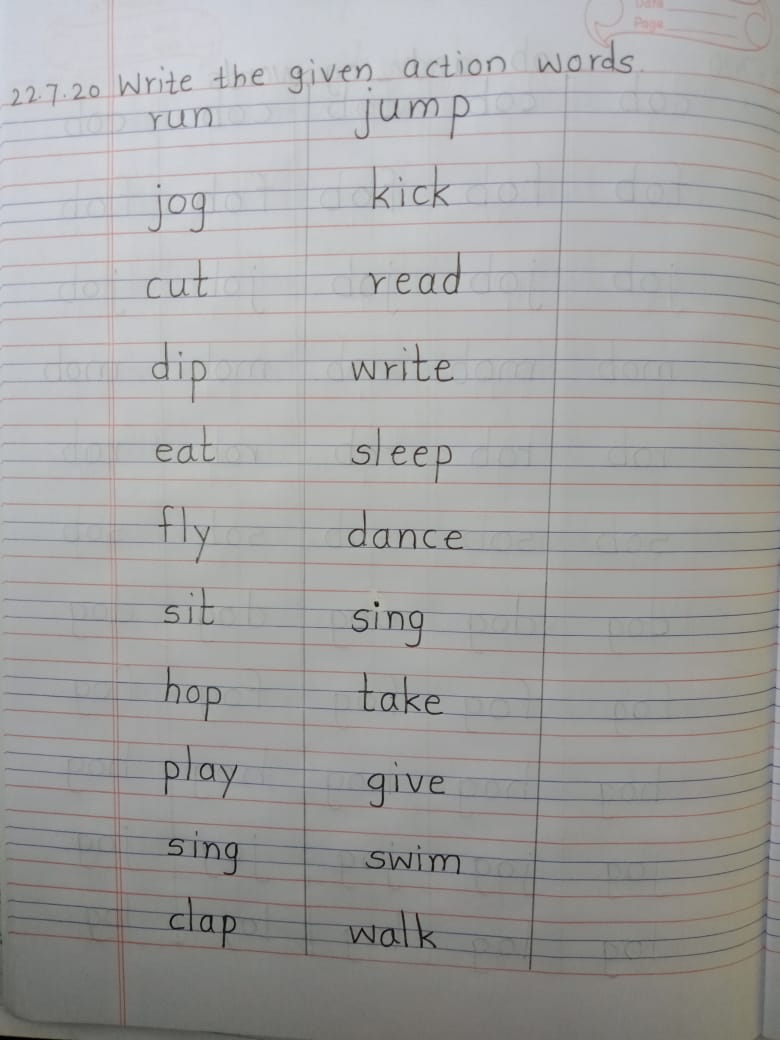 Date
Page
22.7.20 Write the given action words.
run jump
jog kick
cut read
dip write
eat sleep
fly dance
sit sing
hop take
play give
sing swim
clap walk